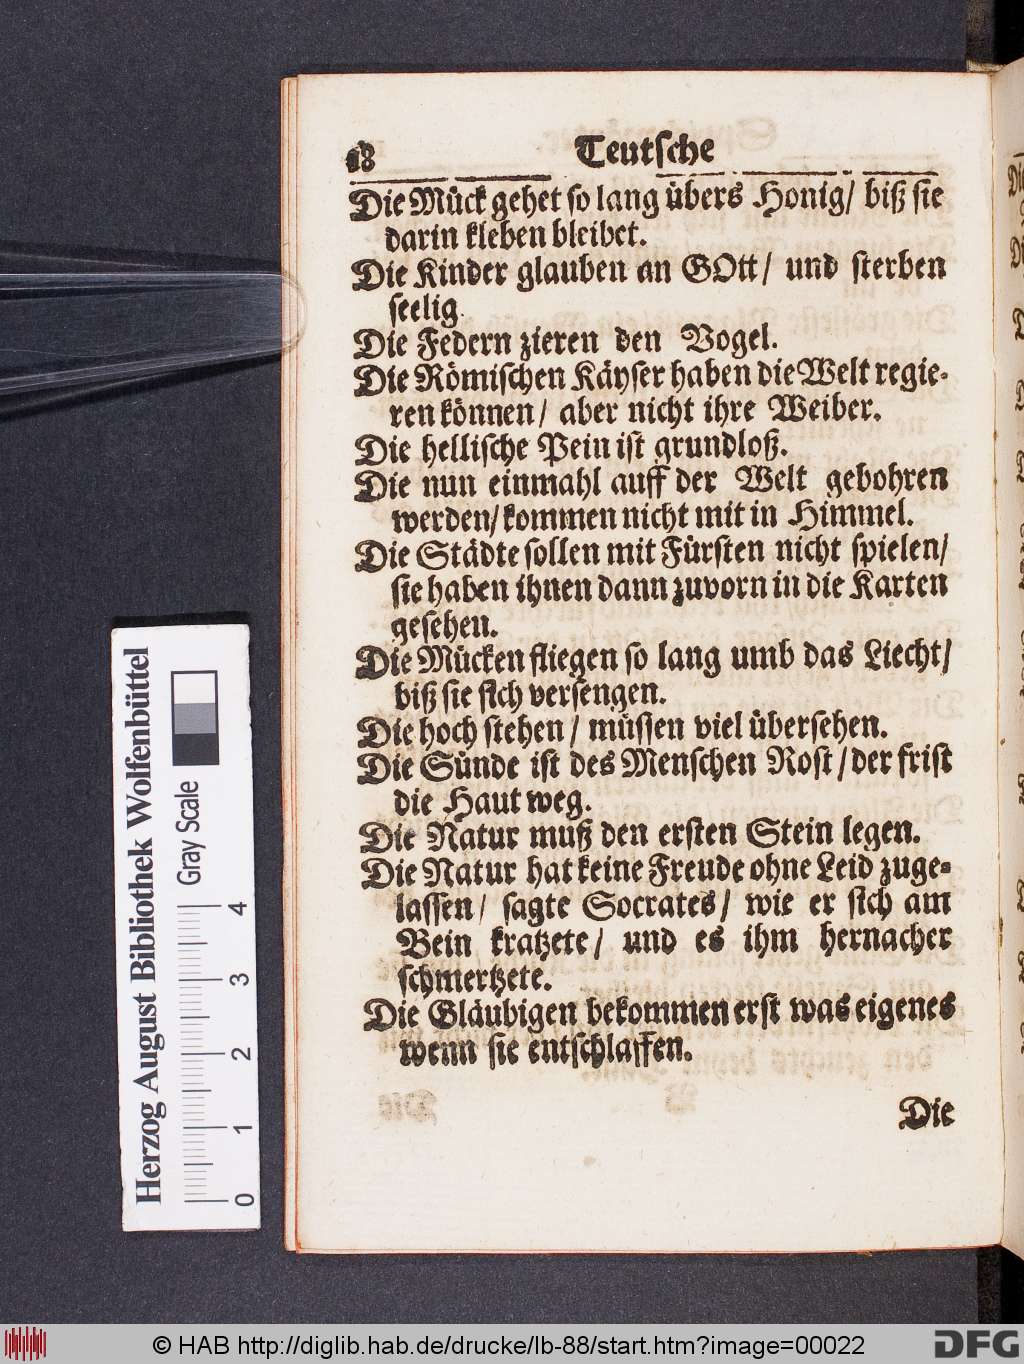 18 Teutsche
Die Mück gehet so lang übers Honig/ biß sie
darin kleben bleibet.
Die Kinder glauben an GOtt/ und sterben
seelig.
Die Federn zieren den Vogel.
Die Römischen Käyser haben die Welt regie-
ren können/ aber nicht ihre Weiber.
Die hellische Pein ist grundloß.
Die nun einmahl auff der Welt gebohren
werden/ kommen nicht mit in Himmel.
Die Städte sollen mit Fürsten nicht spielen/
sie haben ihnen dann zuvorn in die Karten
gesehen.
Die Mücken fliegen so lang umb das Liecht/
biß sie sich versengen.
Die hoch stehen/ müssen viel übersehen.
Die Sünde ist des Menschen Rost/ der frist
die Haut weg.
Die Natur muß den ersten Stein legen.
Die Natur hat keine Freude ohne Leid zuge-
lassen/ sagte Socrates/ wie er sich am
Bein kratzete/ und es ihm hernacher
schmertzete.
Die Gläubigen bekommen erst was eigenes
wenn sie entschlaffen.
Die
Herzog August Bibliothek Wolfenbüttel
Gray Scale
0 1 2 3 4
© HAB http://diglib.hab.de/drucke/lb-88/start.htm?image=00022
DFG